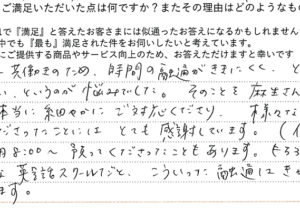 ご満足いただいた点は何ですか？またその理由はどのようなもの
で『満足』と答えたお客さまには似通ったお答えになるかもしれません
中でも『最も』満足された件をお伺いしたいと考えています。
にご提供する商品やサービス向上のため、お答えただけますと幸いです
共働きのため、時間の融通がきにくく、と
い、というのが悩みでした。そのことを麻生さん
本当に細やかにご対応くださり、様々な
ださったことには とても感謝しています。（
8:00〜 預ってくださったこともあります。
な英会話スクールだと、こういった融通はき
ます。